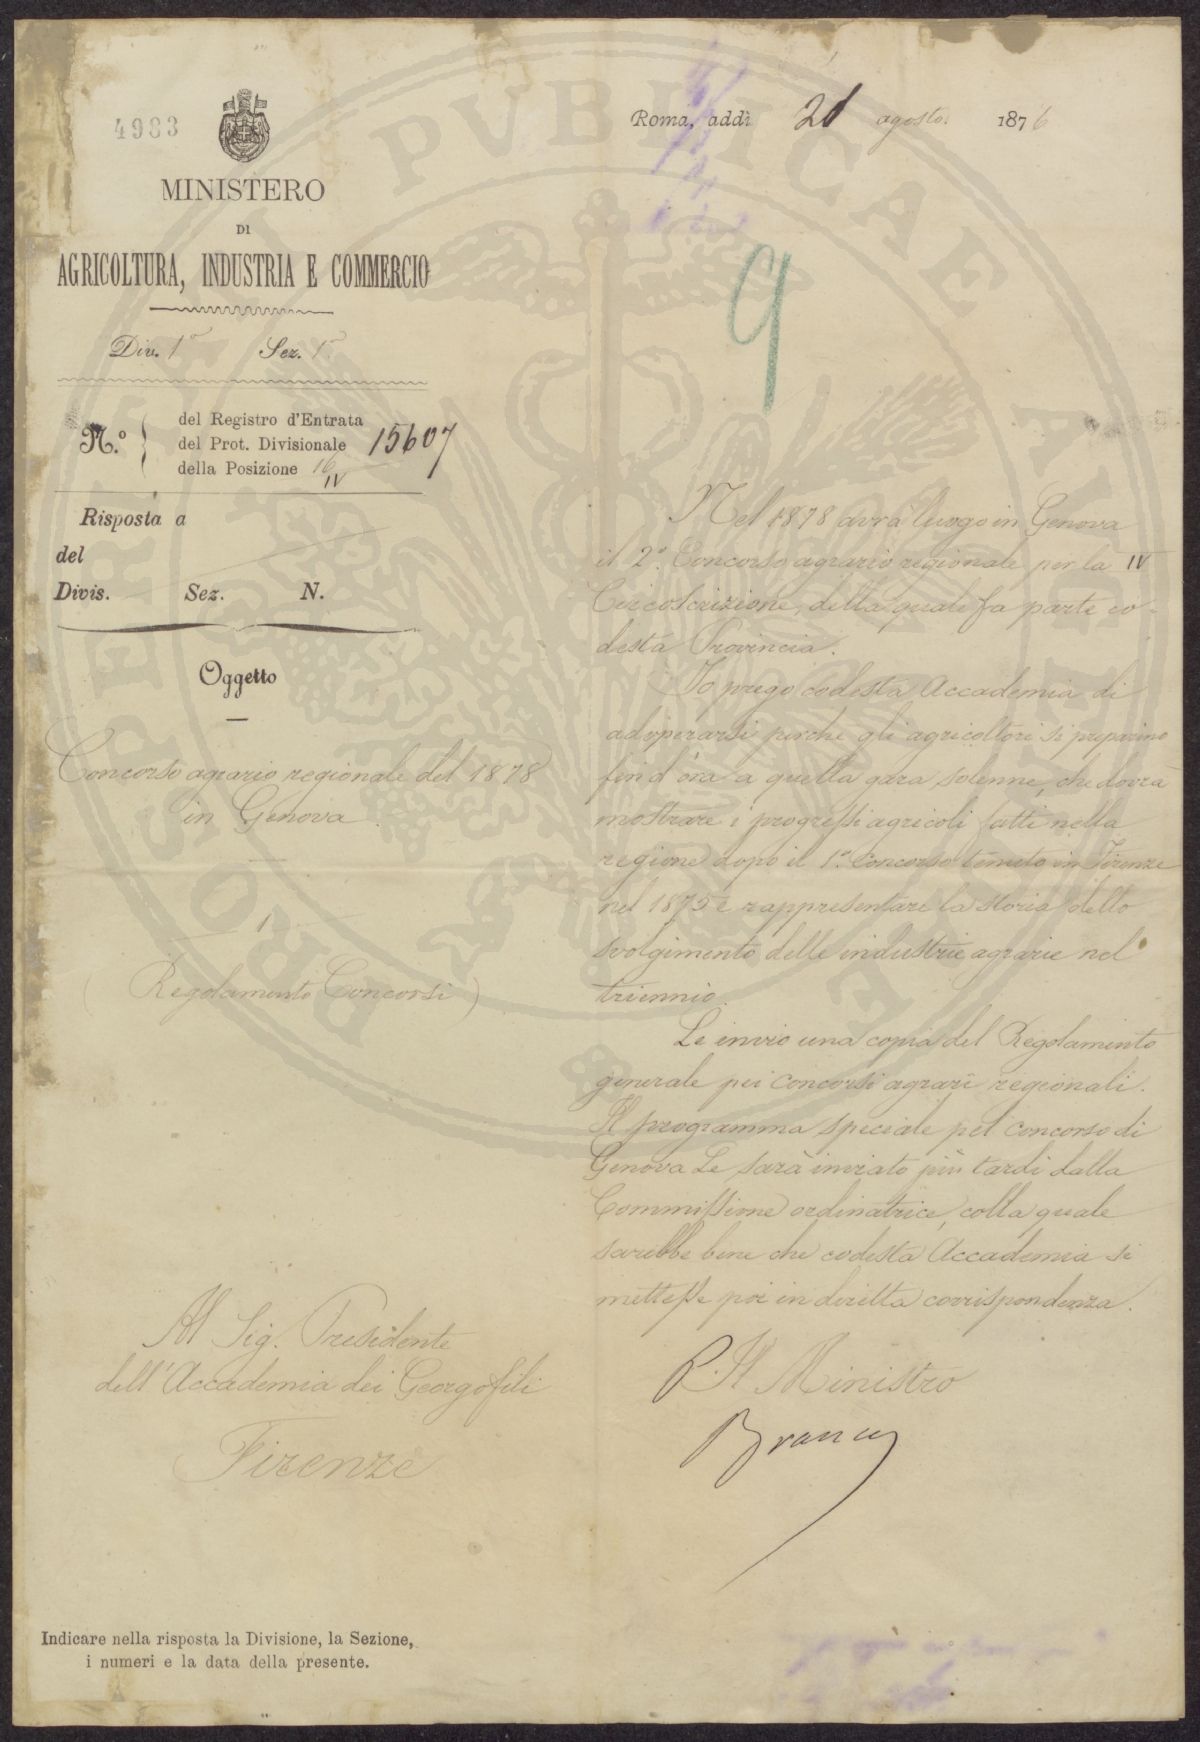 4983
MINISTERO
DI
AGRICOLTURA, INDUSTRIA E COMMERCIO
Div. 1ª Sez. 1ª
N.º
del Registro d'Entrata
del Prot. Divisionale 15607
della Posizione 16/IV
Risposta a
del
Divis. Sez. N.
Oggetto
Concorso agrario regionale del 1878
in Genova
1
(Regolamento Concorsi)
Al Sig. Presidente
dell'Accademia dei Georgofili
Firenze
Indicare nella risposta la Divisione, la Sezione,
i numeri e la data della presente.
Roma, addì 21 agosto 1876
9
Nel 1878 avrà luogo in Genova
il 2º Concorso agrario regionale per la IV
Circoscrizione, della quale fa parte co-
desta Provincia.
Io prego codesta Accademia di
adoperarsi perchè gli agricoltori si preparino
fin d'ora a quella gara solenne, che dovrà
mostrare i progressi agricoli fatti nella
regione dopo il 1º Concorso tenuto in Firenze
nel 1875 e rappresentare la storia dello
svolgimento delle industrie agrarie nel
triennio.
Le invio una copia del Regolamento
generale pei concorsi agrarî regionali.
Il programma speciale pel concorso di
Genova Le sarà inviato più tardi dalla
Commissione ordinatrice, colla quale
sarebbe bene che codesta Accademia si
mettesse poi in diretta corrispondenza.
P. Il Ministro
Branca
PROSPERITATI PUBLICAE AUGENDAE